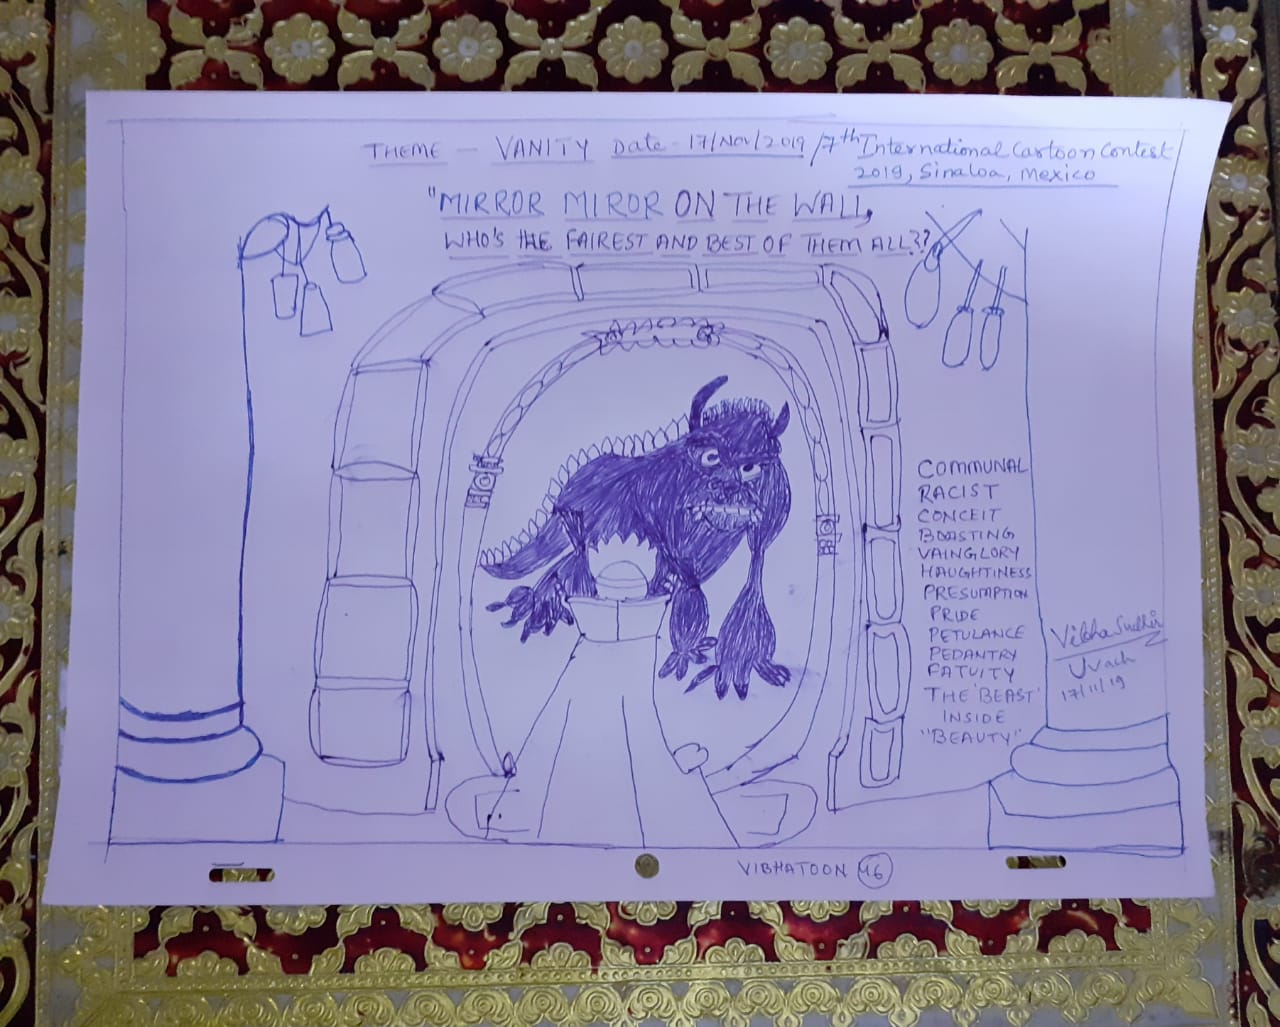 THEME - VANITY Date - 17/Nov/2019 / 7th International Cartoon Contest
2019, Sinaloa, Mexico
"MIRROR MIROR ON THE WALL,
WHO'S THE FAIREST AND BEST OF THEM ALL??
COMMUNAL
RACIST
CONCEIT
BOASTING
VAINGLORY
HAUGHTINESS
PRESUMPTION
PRIDE
PETULANCE
PEDANTRY
FATUITY
THE 'BEAST'
INSIDE
"BEAUTY"
Vibha Sudhir
Uvach
17/11/19
VIBHATOON 46